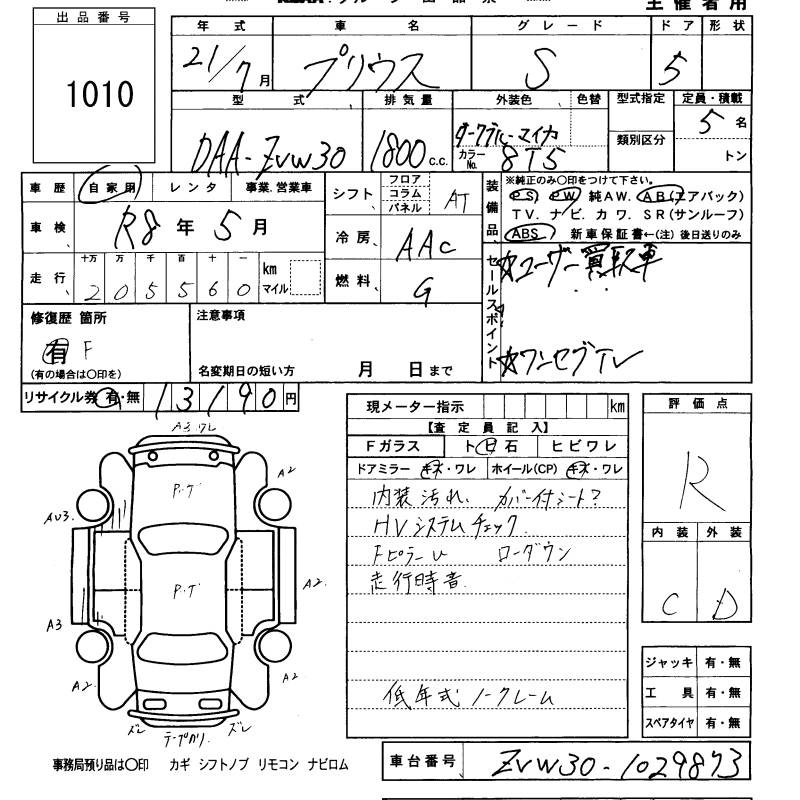 主催者用
出品番号
1010
年式 車名 グレード ドア 形状
21/7月 プリウス S 5
型式 排気量 外装色 色替 型式指定 定員・積載
DAA-ZVW30 1800c.c. カラーNo. 8T5 類別区分 5名
トン
車歴 自家用 レンタ 事業.営業車
シフト フロア コラム パネル AT
装備品 ※純正のみ〇印をつけて下さい。
PS. PW. 純AW. AB(エアバック)
TV. ナビ. カワ. SR(サンルーフ)
ABS. 新車保証書←(注)後日送りのみ
車検 R8年5月
冷房 AAC
走行 十万 万 千 百 十 一 km マイル
205560
燃料 G
セールスポイント
☆ユーザー買取車
☆ワンセグTV
修復歴 箇所
有 F
(有の場合は〇印を)
注意事項
名変期日の短い方 月 日まで
リサイクル券 有・無 13190円
現メーター指示 km
【査定員記入】
Fガラス ト ヒ 石 ヒビワレ
ドアミラー キズ・ワレ ホイール(CP) キズ・ワレ
内装汚れ. カバー付シート?
HVシステムチェック.
Fピラーu ローダウン
走行時音.
低年式ノークレーム
評価点
R
内装 外装
C D
ジャッキ 有・無
工具 有・無
スペアタイヤ 有・無
A3.ワレ
A2
P.ゲ
AU3.
P.ゲ
A2.
A3
A2.
A2
ズレ ズレ
事務局預り品は〇印 カギ シフトノブ リモコン ナビロム
車台番号 ZVW30-1029873